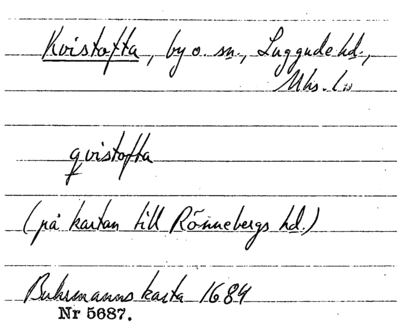 Kvistofta, by o. sn, Luggude hd.,
Mhs. l.
qvistofta
(på kartan till Rönnebergs hd.)
Buhrmanns karta 1684
Nr 5687.